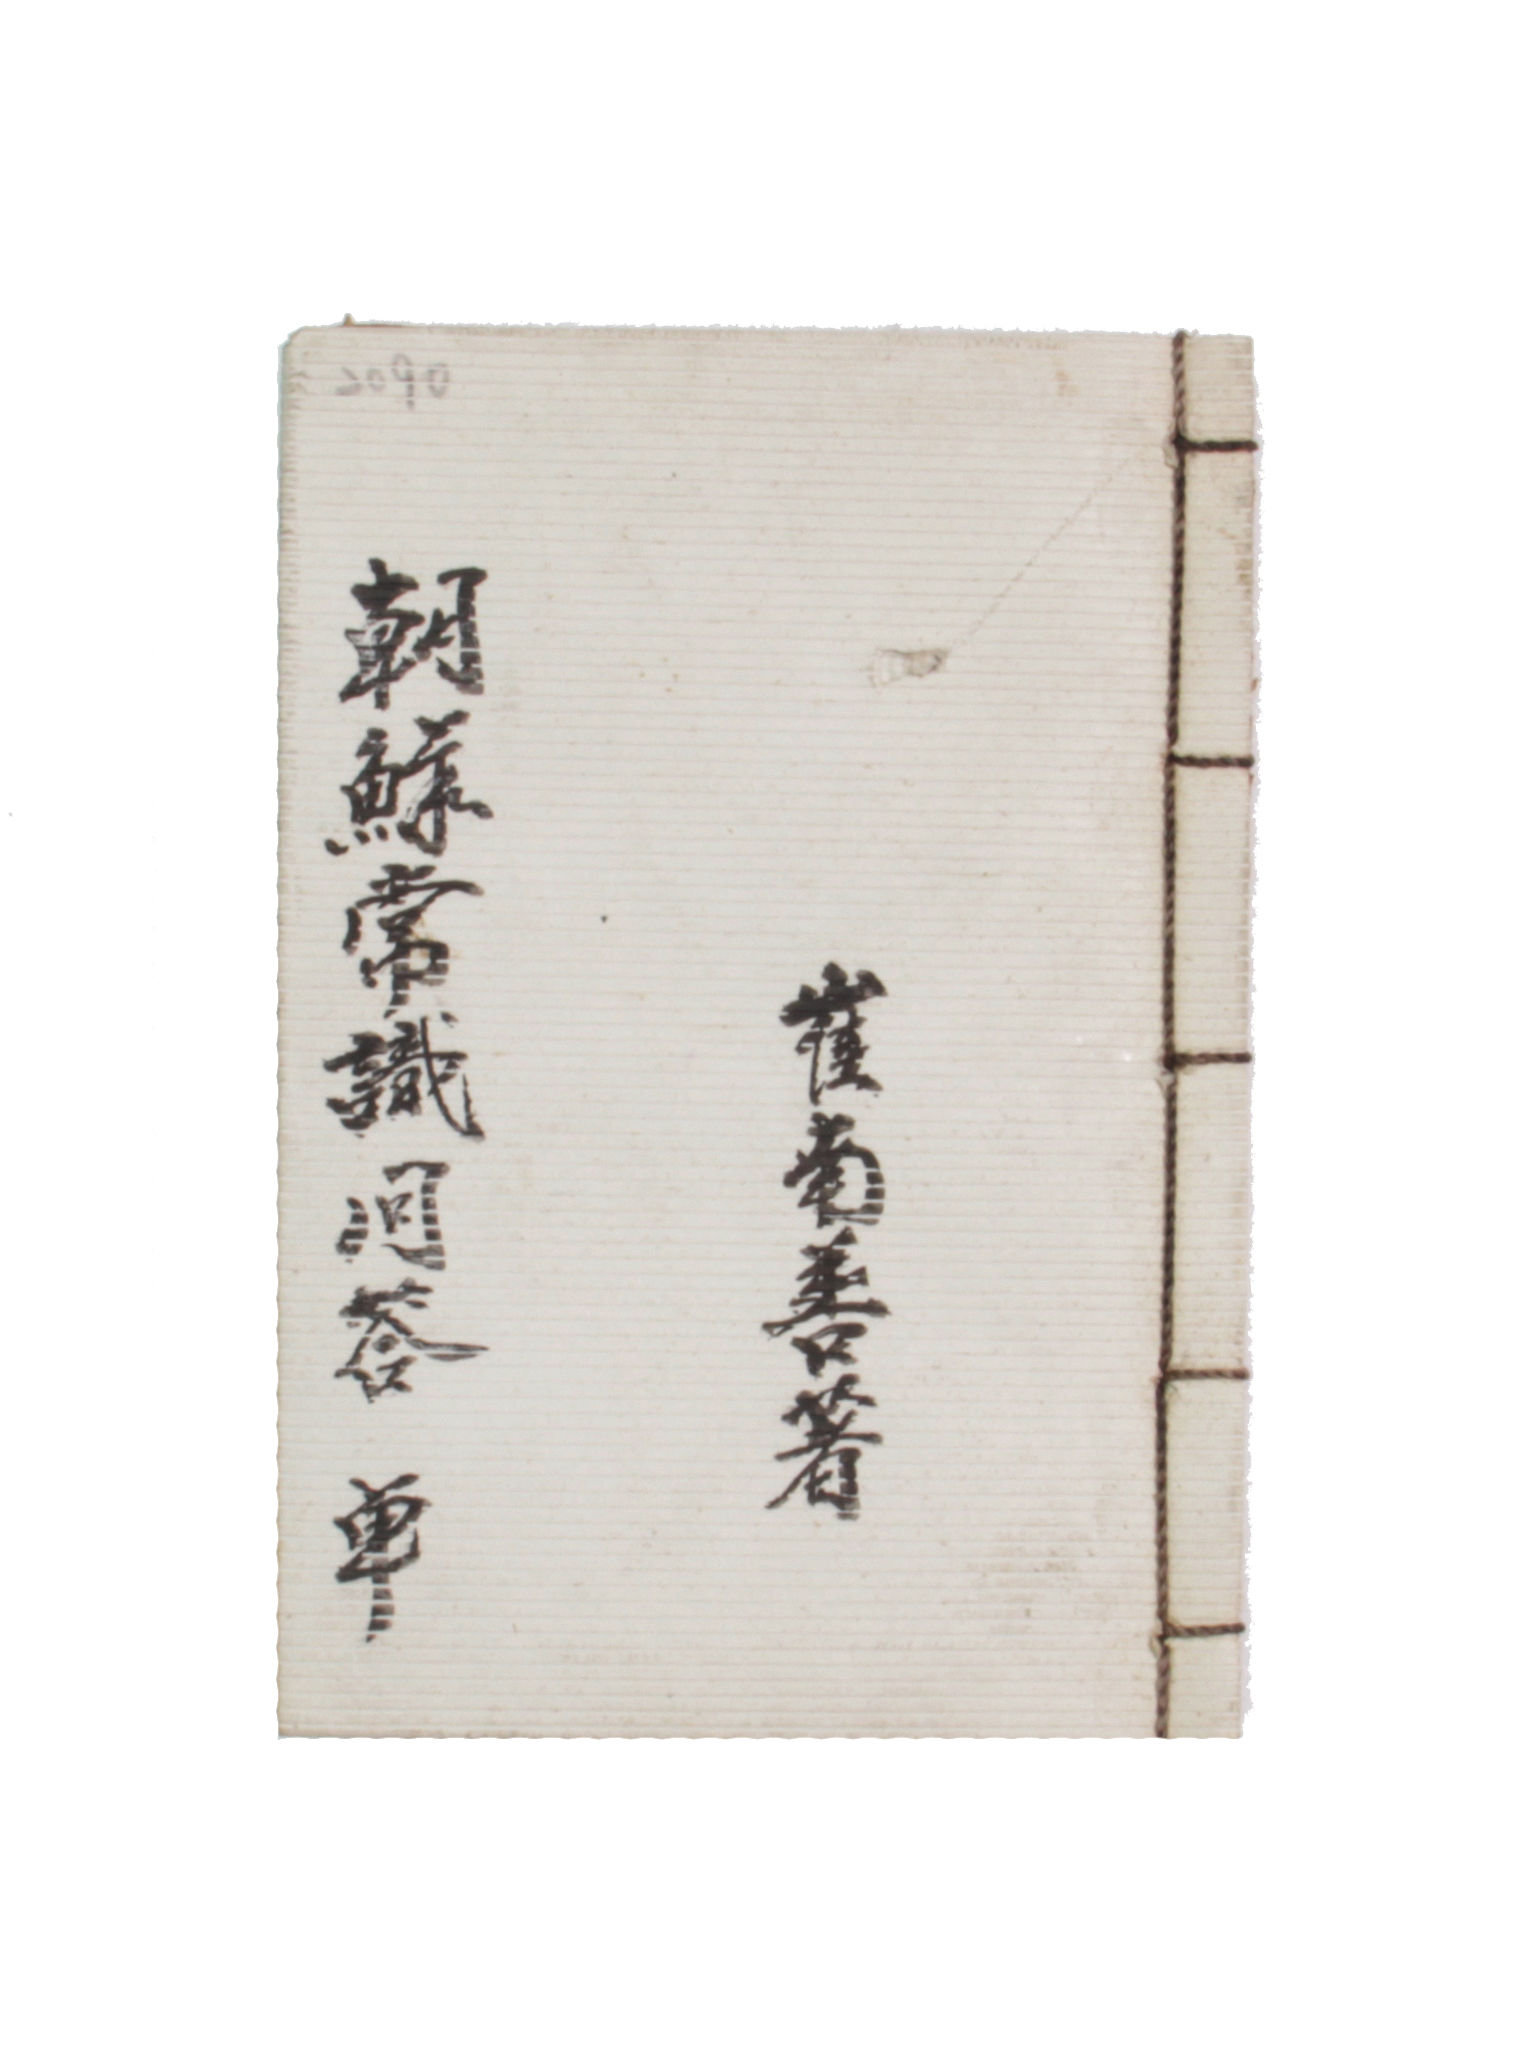 崔南善著
朝鮮常識問答 単